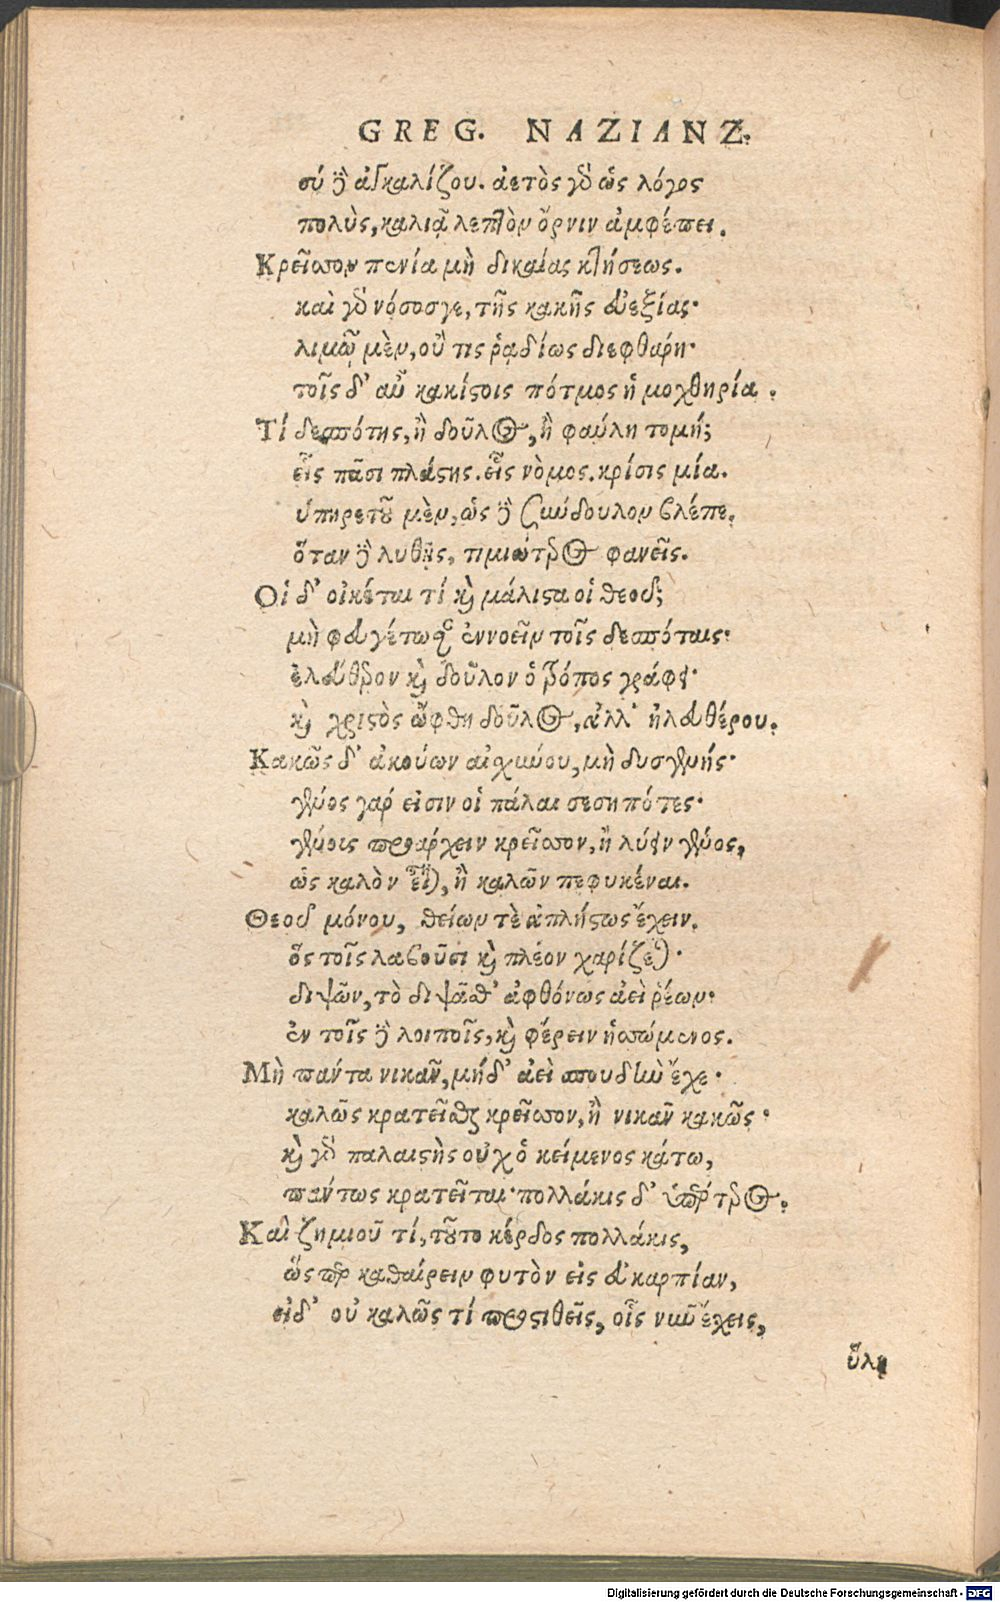 GREG. NAZIANZ.
σύ δὲ ἀγκαλίζου. ἀετὸς γὰρ ὡς λόγος
πολὺς, καλιᾷ λεπτὸν ὄρνιν ἀμφέπει.
Κρεῖσσον πενία μὴ δικαίας κτήσεως.
καὶ γὰρ νόσος γε, τῆς κακῆς εὐεξίας·
λιμῷ μὲν, οὔ τις ῥᾳδίως διεφθάρη·
τοῖς δ' αὖ κακίστοις πότμος ἡ μοχθηρία.
Τί δεσπότης, ἢ δοῦλος, ἢ φαύλη τομή;
εἷς πᾶσι πλάστης. εἷς νόμος. κρίσις μία.
ὑπηρετοῦ μὲν, ὡς δὲ σύνδουλον βλέπε,
ὅταν δὲ λυθῇς, τιμιώτερος φανεῖς.
Οἱ δ' οἰκέται τί καὶ μάλιστα οἱ θεοῦ;
μὴ φευγέτωσαν ἐννοεῖν τοῖς δεσπόταις·
ἐλεύθερον καὶ δοῦλον ὁ τρόπος γράφει·
καὶ χριστὸς ὤφθη δοῦλος, ἀλλ' ἠλευθέρου.
Κακῶς δ' ἀκούων αἰσχύνου, μὴ δυσγενής·
γένος γάρ εἰσιν οἱ πάλαι σεσηπότες·
γένοις προάρχειν κρεῖσσον, ἢ λύειν γένος,
ὡς καλὸν εἶναι, ἢ καλῶν πεφυκέναι.
Θεοῦ μόνου, θείων τὲ ἀπλήστως ἔχειν.
ὃς τοῖς λαβοῦσι καὶ πλέον χαρίζεται·
διψῶν, τὸ διψᾶσθ' ἀφθόνως ἀεὶ ῥέων·
ἐν τοῖς δὲ λοιποῖς, καὶ φέρειν ἡσσώμενος.
Μὴ πάντα νικᾶν, μήδ' ἀεὶ σπουδὴν ἔχε·
καλῶς κρατεῖσθαι κρεῖσσον, ἢ νικᾶν κακῶς·
καὶ γὰρ παλαιστὴς οὐχ ὁ κείμενος κάτω,
πάντως κρατεῖται· πολλάκις δ' ὑπέρτερος.
Καὶ ζημιοῦ τί, τοῦτο κέρδος πολλάκις,
ὥσπερ καθαίρειν φυτὸν εἰς εὐκαρπίαν,
εἰδ' οὐ καλῶς τί προστιθεῖς, οἷς νῦν ἔχεις,
ὕλη
Digitalisierung gefördert durch die Deutsche Forschungsgemeinschaft - DFG